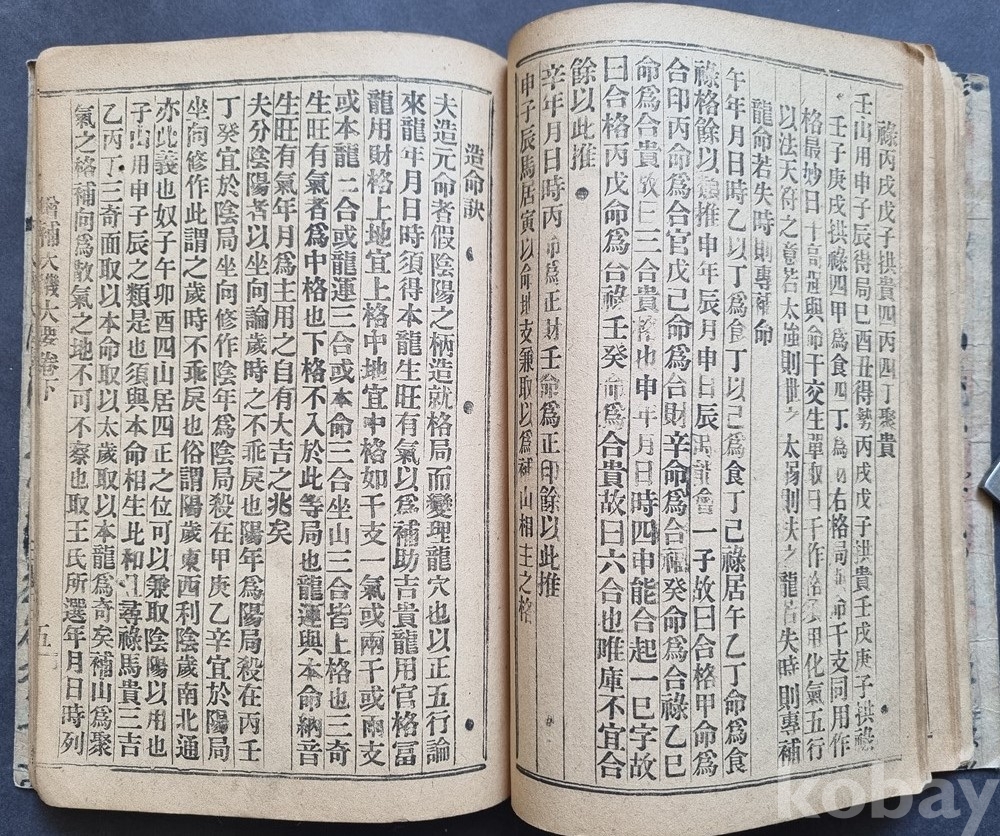 祿丙戌戊子拱貴四丙四丁聚貴
壬山用申子辰得局巳酉丑得勢丙戌戊子拱貴壬戌庚子拱祿
壬子庚戌拱祿四甲爲食四丁爲 右格局 命干支同用作
格最妙日 與命干交生單取日干作 用化氣五行
以法天符之意若太强則 太弱則扶 龍若失時則專補
龍命若失時則專補命
午年月日時乙以丁爲食丁以己爲食丁己祿居午乙丁命爲食
祿格餘以 推申年辰月申日辰 能會一子故曰合格甲命爲
合印丙命爲合官戊己命爲合財辛命爲合福癸命爲合祿乙巳
命爲合貴故曰三合貴格也申年月日時四申能合起一巳字故
曰合格丙戊命爲合祿壬癸命爲合貴故曰六合也唯庫不宜合
餘以此推
辛年月日時丙命爲正財壬命爲正印餘以此推
申子辰馬居寅以命 支兼取以爲補山相主之格
造命訣
夫造元命者假陰陽之柄造就格局而變理龍穴也以正五行論
來龍年月日時須得本龍生旺有氣以爲補助吉貴龍用官格富
龍用財格上地宜上格中地宜中格如干支一氣或兩干或兩支
或本龍二合或龍運三合或本命三合坐山三合皆上格也三奇
生旺有氣者爲中格也下格不入於此等局也龍運與本命納音
生旺有氣年月爲主用之自有大吉之兆矣
夫分陰陽者以坐向論歲時之不乖戾也陽年爲陽局殺在丙壬
丁癸宜於陰局坐向修作陰年爲陰局殺在甲庚乙辛宜於陽局
坐向修作此謂之歲時不乘戾也俗謂陽歲東西利陰歲南北通
亦此義也奴子午卯酉四山居四正之位可以兼取陰陽以用也
子山用申子辰之類是也須與本命相生比和且尋祿馬貴三吉
乙丙丁三奇面取以本命取以太歲取以本龍爲奇矣補山爲聚
氣之格補向爲散氣之地不可不察也取王氏所選年月日時列
增補天機大要卷下
五
kobay